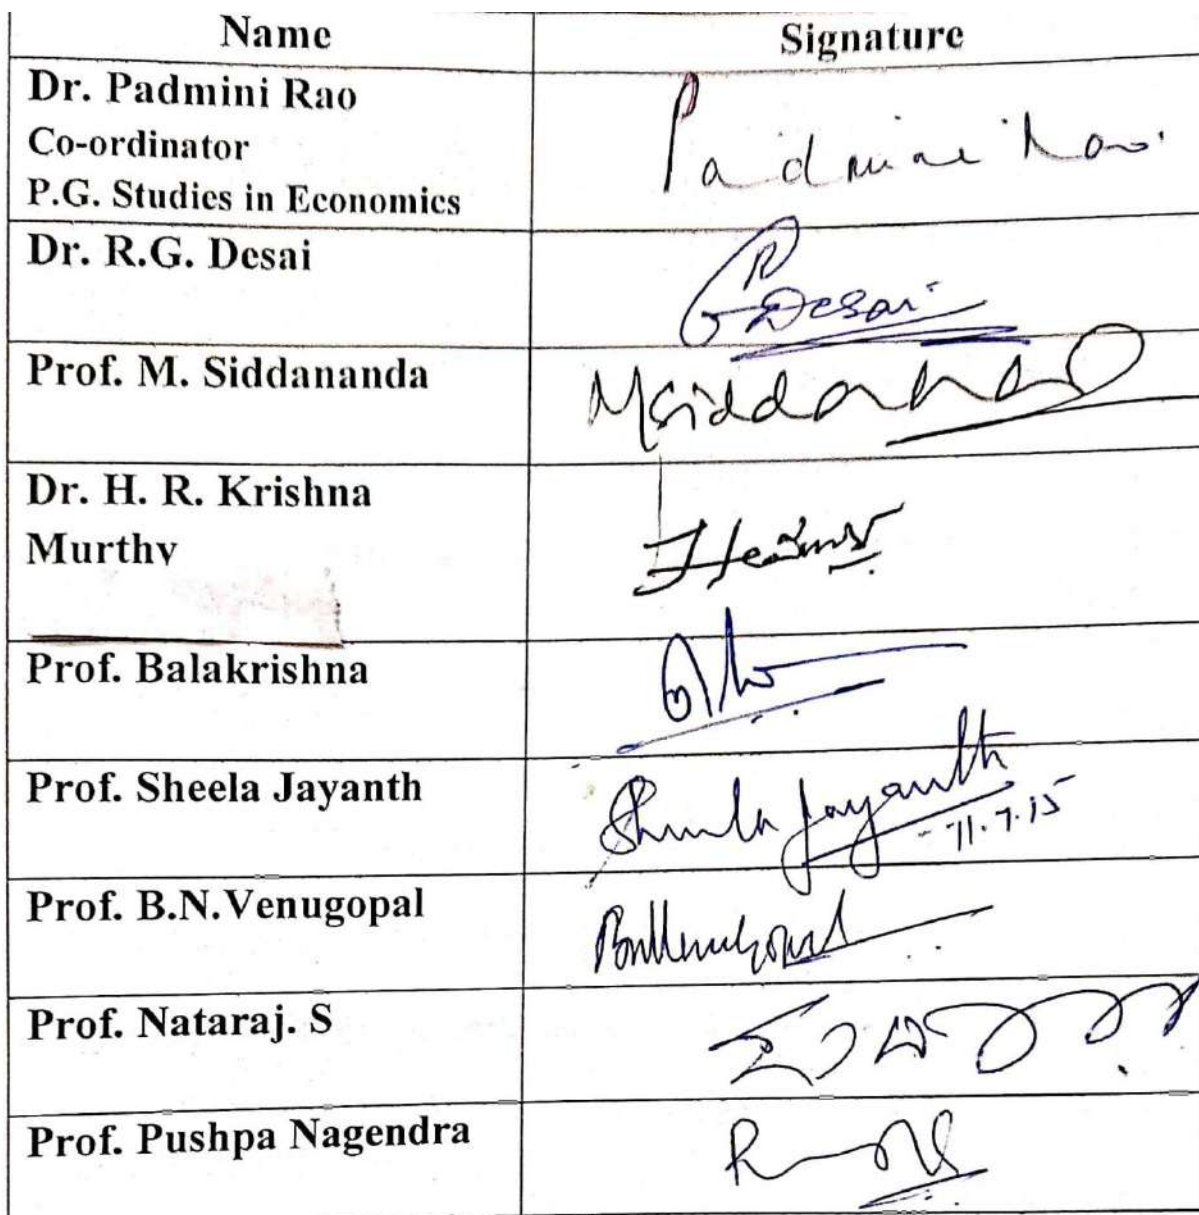 Name Signature
Dr. Padmini Rao Padmini Rao
Co-ordinator
P.G. Studies in Economics
Dr. R.G. Desai RG Desai
Prof. M. Siddananda MSiddananda
Dr. H. R. Krishna
Murthy
Prof. Balakrishna
Prof. Sheela Jayanth Sheela Jayanth
11.7.15
Prof. B.N.Venugopal BNVenugopal
Prof. Nataraj. S
Prof. Pushpa Nagendra